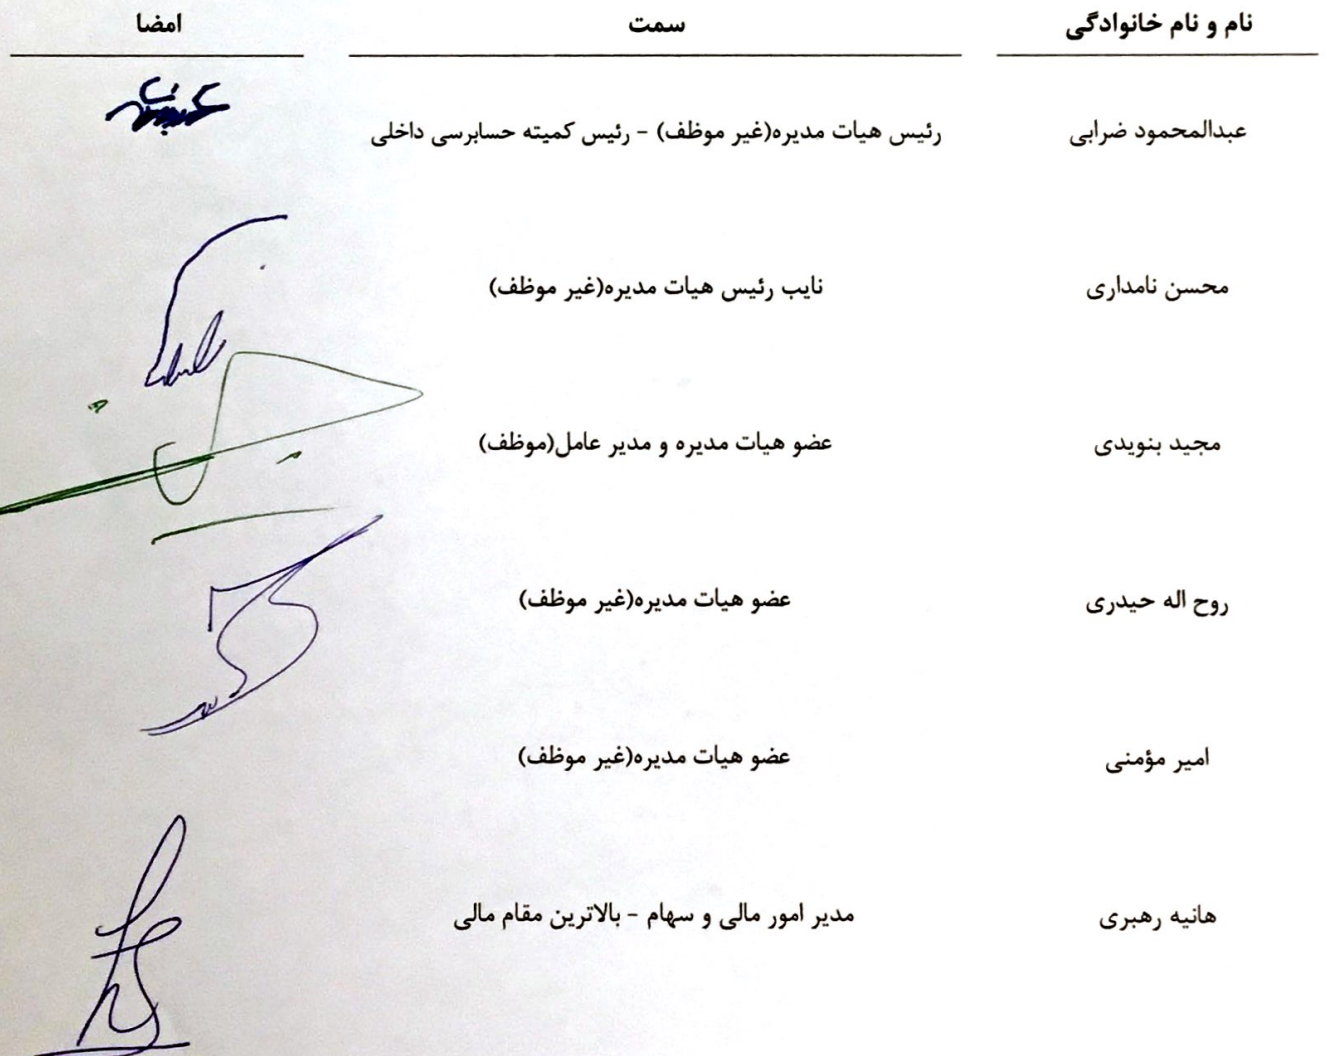 نام و نام خانوادگی سمت امضا
عبدالمحمود ضرابی رئیس هیات مدیره(غیر موظف) - رئیس کمیته حسابرسی داخلی
محسن نامداری نایب رئیس هیات مدیره(غیر موظف)
مجید بنویدی عضو هیات مدیره و مدیر عامل(موظف)
روح اله حیدری عضو هیات مدیره(غیر موظف)
امیر مؤمنی عضو هیات مدیره(غیر موظف)
هانیه رهبری مدیر امور مالی و سهام - بالاترین مقام مالی